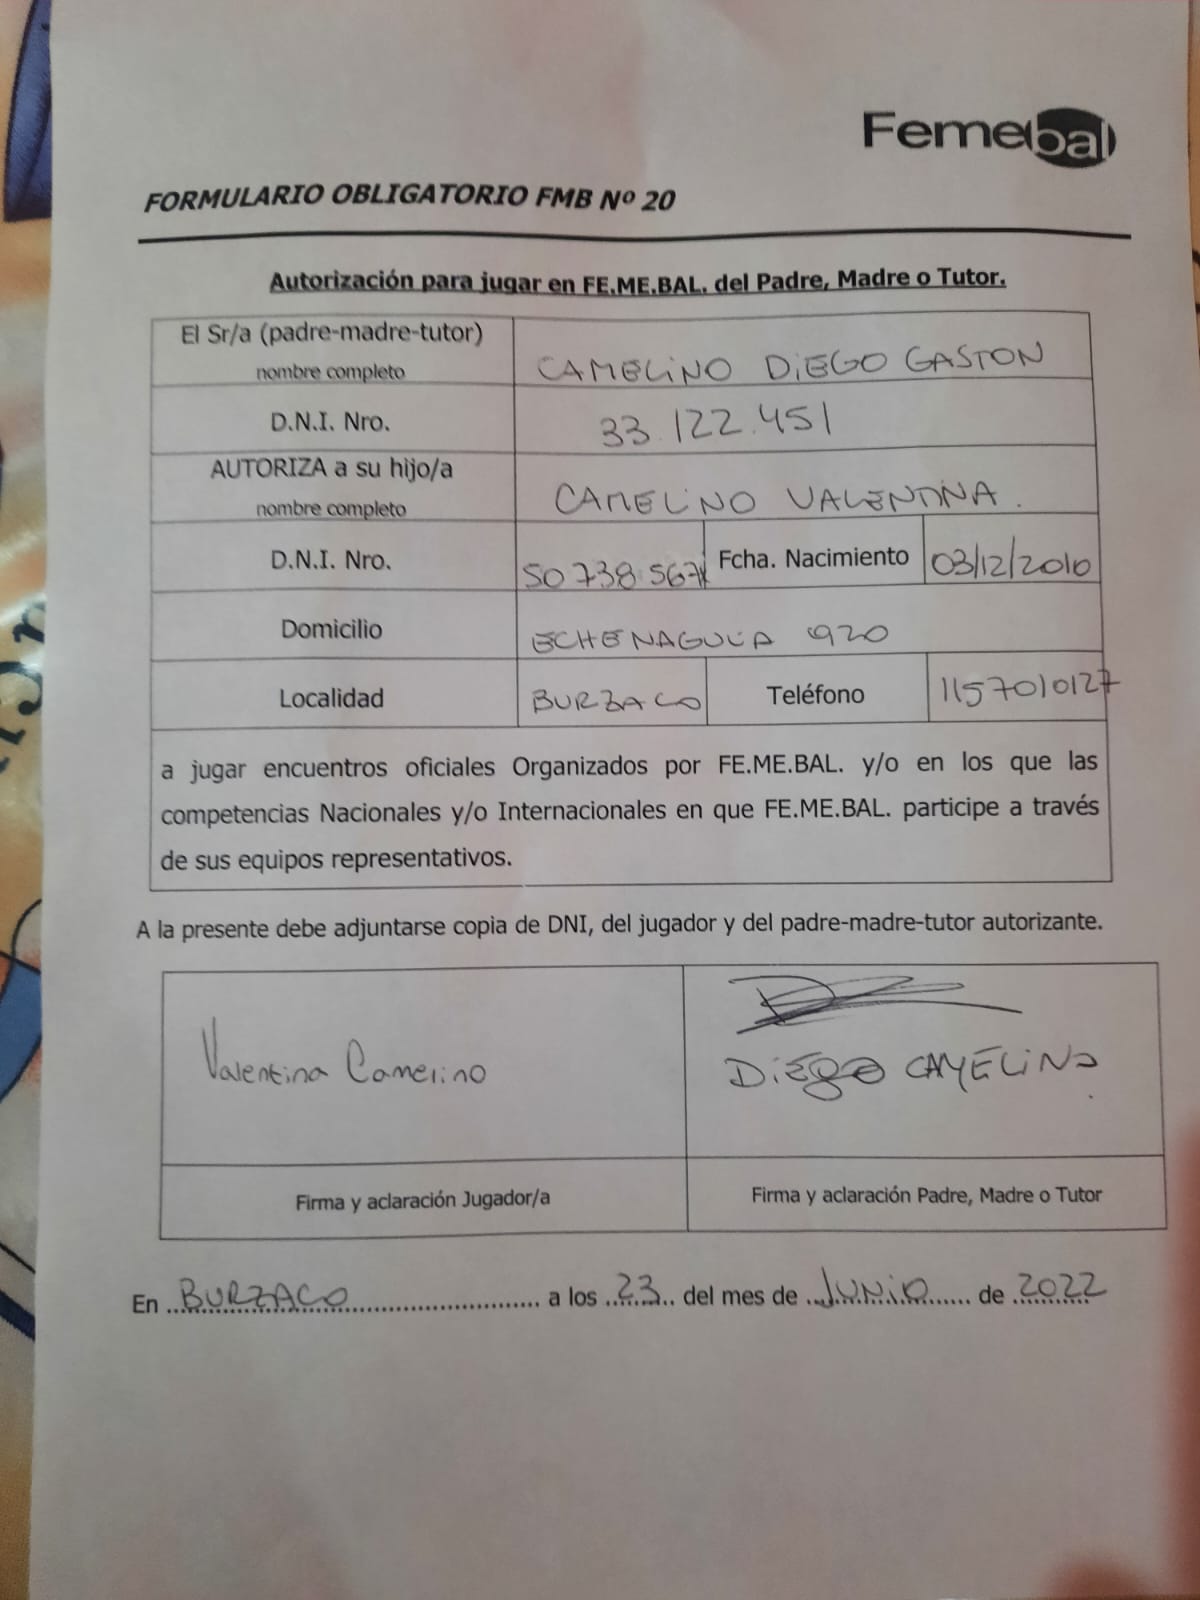 Femebal
FORMULARIO OBLIGATORIO FMB Nº 20
Autorización para jugar en FE.ME.BAL. del Padre, Madre o Tutor.
El Sr/a (padre-madre-tutor) nombre completo CAMELINO DIEGO GASTON
D.N.I. Nro. 33.122.451
AUTORIZA a su hijo/a nombre completo CAMELINO VALENTINA.
D.N.I. Nro. 50 738 567 Fcha. Nacimiento 03/12/2010
Domicilio ECHENAGUCIA 920
Localidad BURZACO Teléfono 1157010127
a jugar encuentros oficiales Organizados por FE.ME.BAL. y/o en los que las
competencias Nacionales y/o Internacionales en que FE.ME.BAL. participe a través
de sus equipos representativos.
A la presente debe adjuntarse copia de DNI, del jugador y del padre-madre-tutor autorizante.
Valentina Camelino
DIEGO CAMELINO
Firma y aclaración Jugador/a
Firma y aclaración Padre, Madre o Tutor
En BURZACO a los 23 del mes de JUNIO de 2022